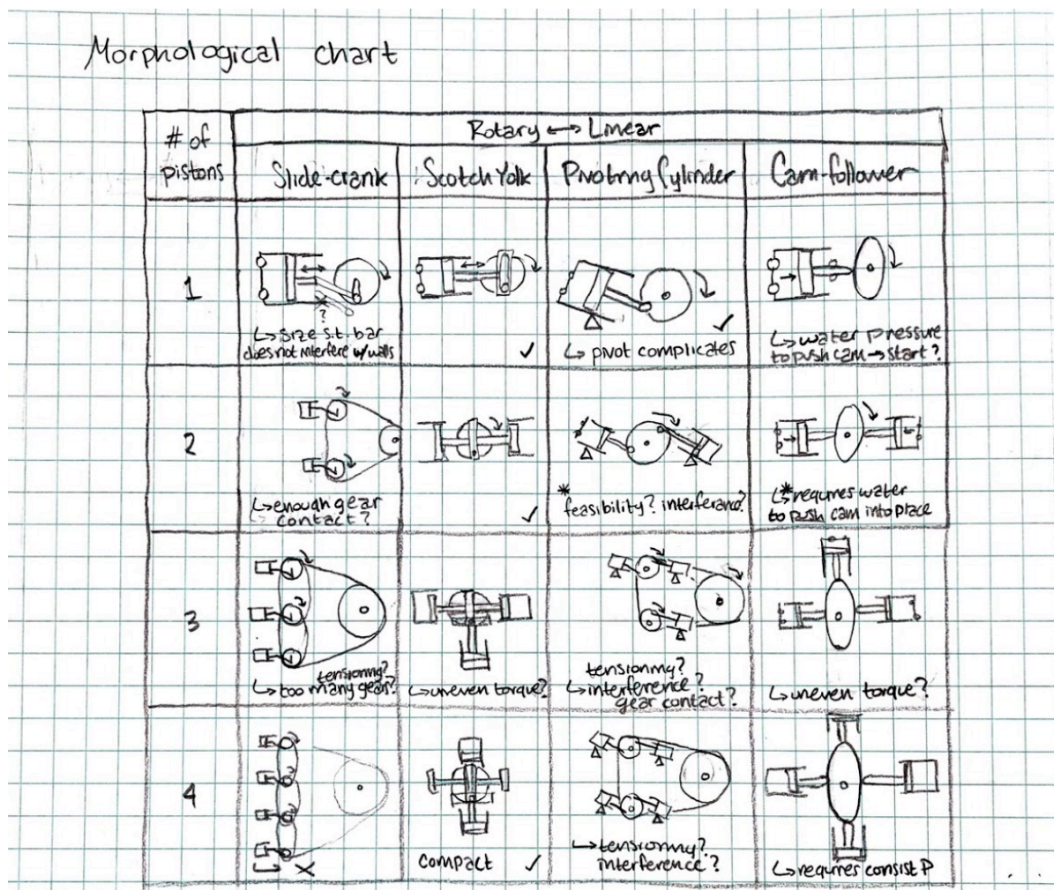 Morphological chart
# of pistons
Rotary ↔ Linear
Slide-crank
Scotch Yolk
Pivoting Cylinder
Cam-follower
1
?
↳ size s.t. bar
does not interfere w/ walls
✓
✓
↳ pivot complicates
↳ water pressure
to push cam → start?
2
↳ enough gear
contact?
✓
*
feasibility? interferance?
↳ *requires water
to push cam into place
3
tensioning?
↳ too many gears?
↳ uneven torque?
tensioning?
↳ interference?
gear contact?
↳ uneven torque?
4
X
compact ✓
↳ tensioning?
interference?
↳ requires consist P